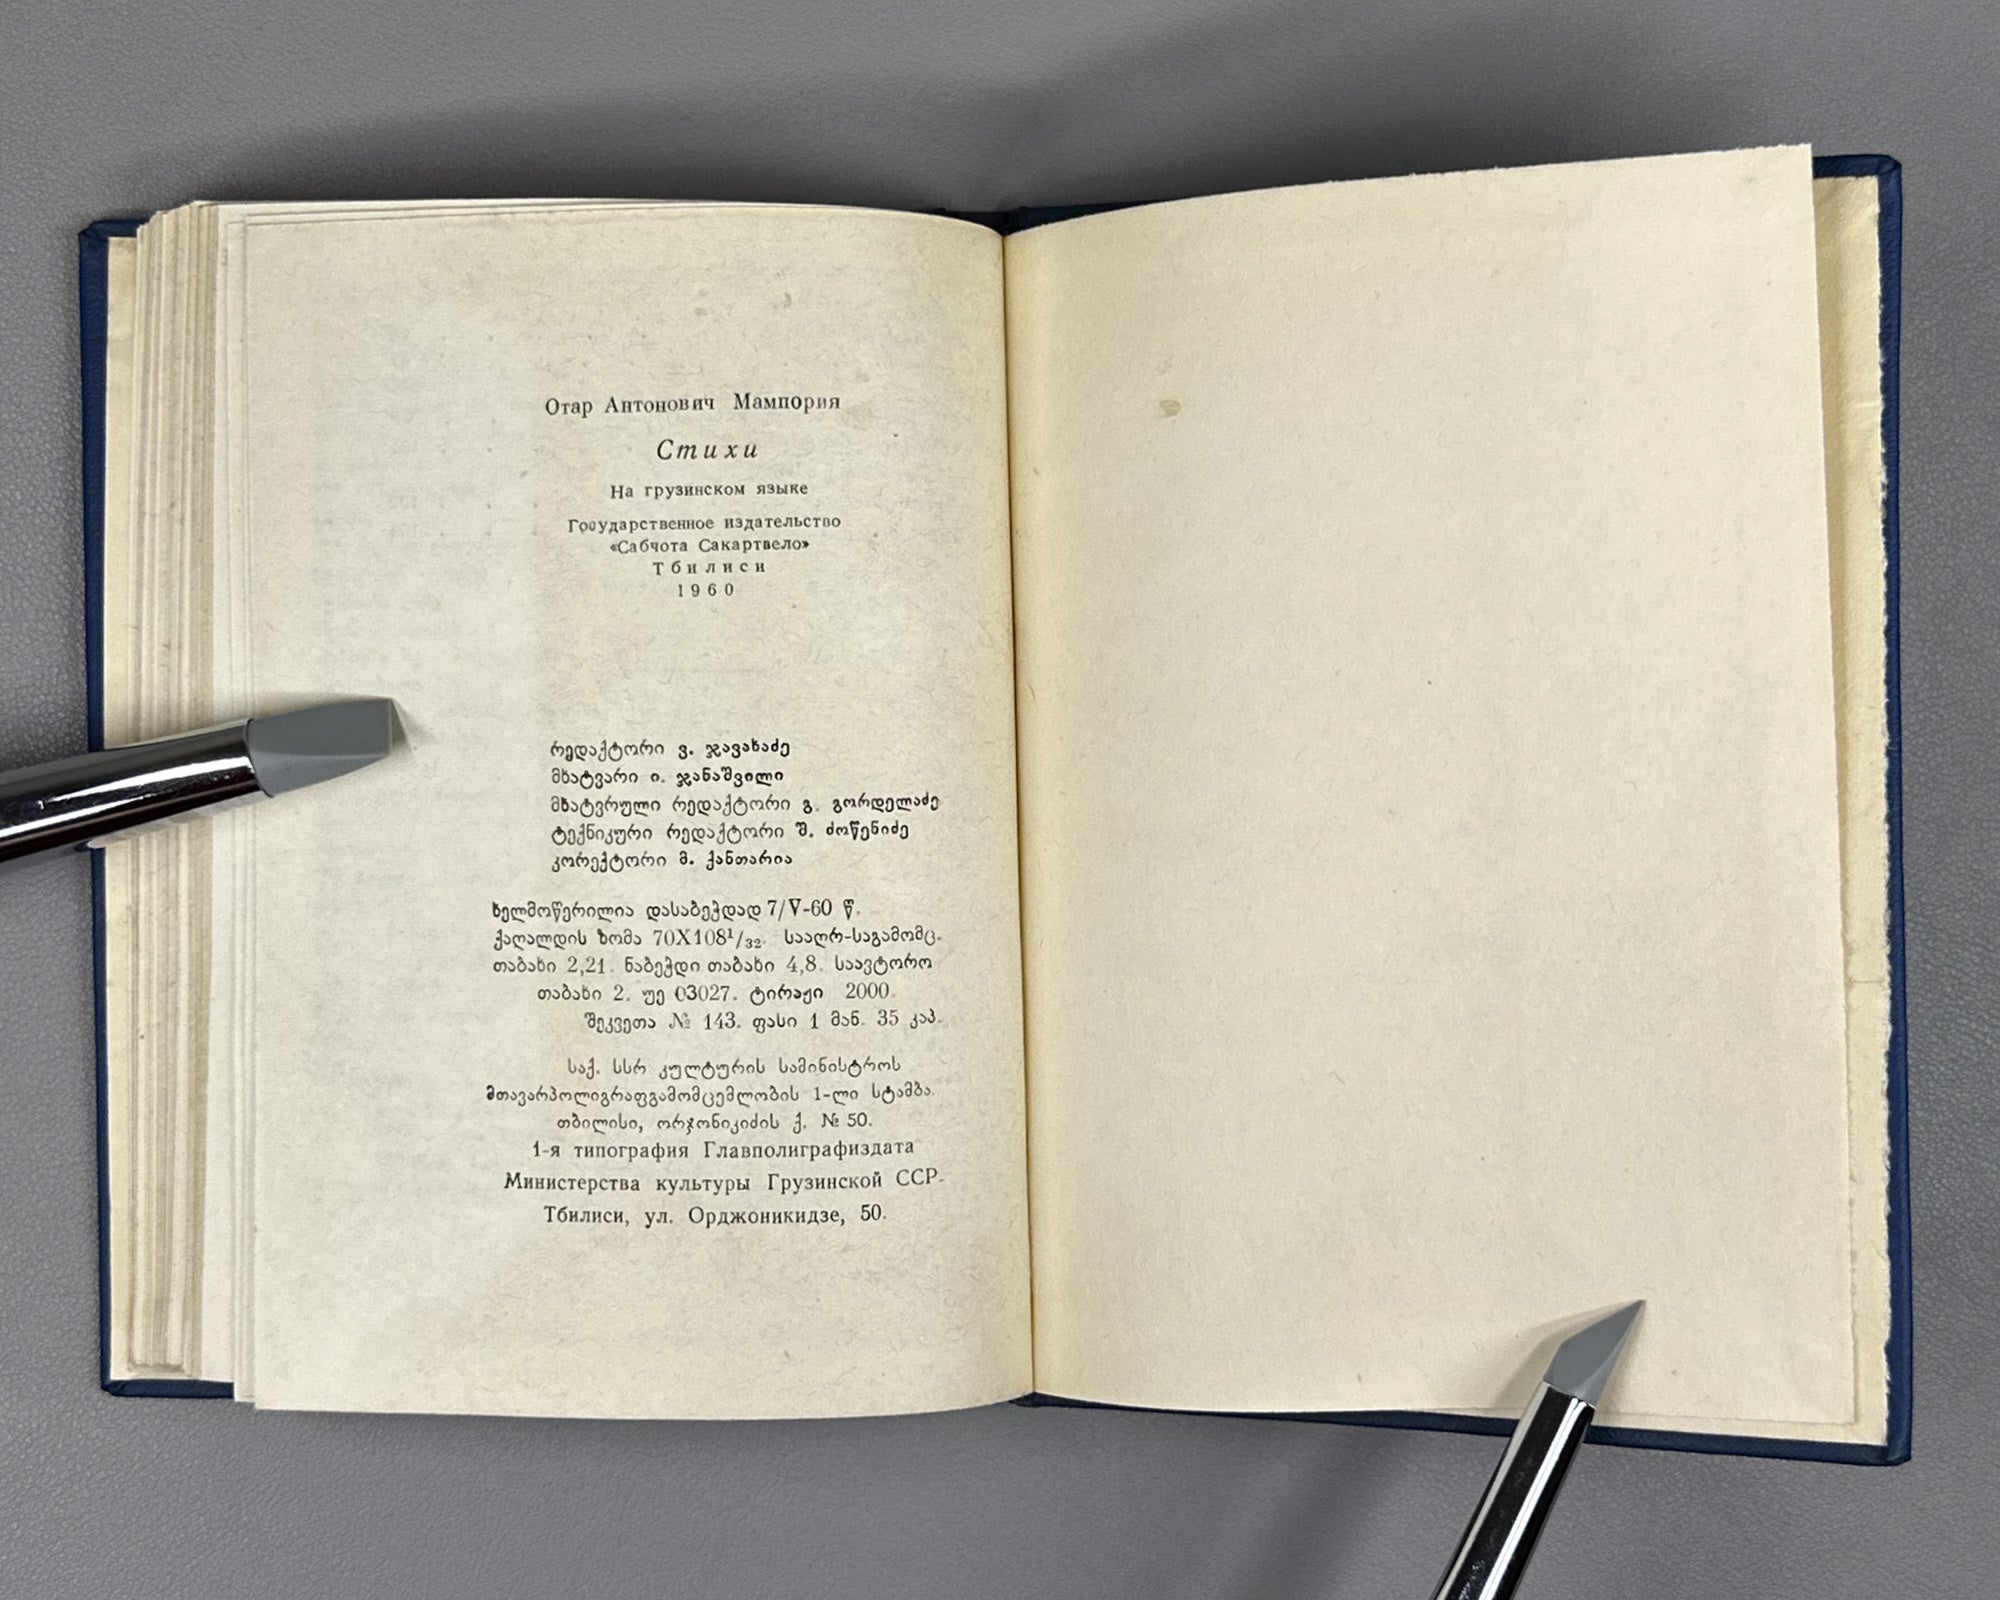 Отар Антонович Мампория
Стихи
На грузинском языке
Государственное издательство
«Сабчота Сакартвело»
Тбилиси
1960
რედაქტორი ვ. ჯავახაძე
მხატვარი ი. ჯანაშვილი
მხატვრული რედაქტორი გ. გორდელაძე
ტექნიკური რედაქტორი შ. ძოწენიძე
კორექტორი მ. ქანთარია
ხელმოწერილია დასაბეჭდად 7/V-60 წ.
ქაღალდის ზომა 70X108¹/₃₂. სააღრ-საგამომც.
თაბახი 2,21. ნაბეჭდი თაბახი 4,8. საავტორო
თაბახი 2. უე 03027. ტირაჟი 2000.
შეკვეთა № 143. ფასი 1 მან. 35 კაპ.
საქ. სსრ კულტურის სამინისტროს
მთავარპოლიგრაფგამომცემლობის 1-ლი სტამბა.
თბილისი, ორჯონიკიძის ქ. № 50.
1-я типография Главполиграфиздата
Министерства культуры Грузинской ССР.
Тбилиси, ул. Орджоникидзе, 50.